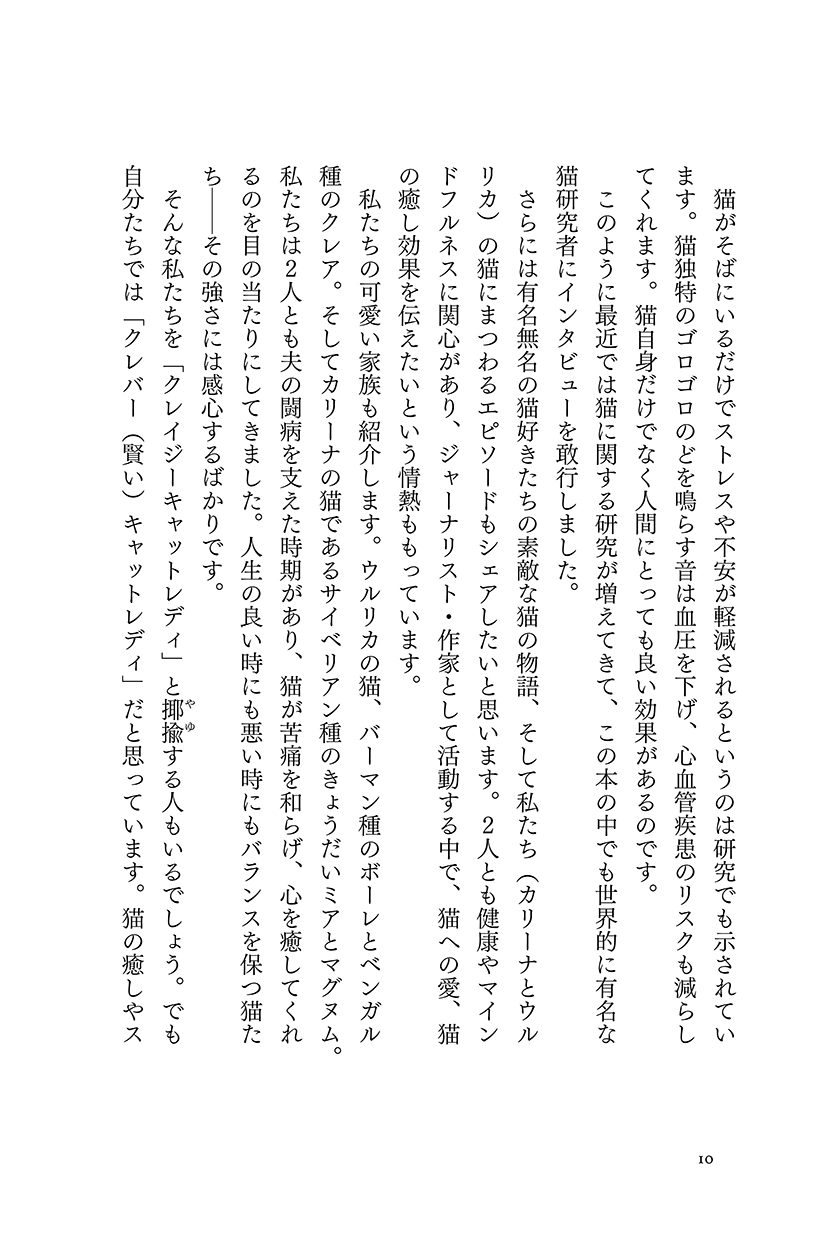 猫がそばにいるだけでストレスや不安が軽減されるというのは研究でも示されてい
ます。猫独特のゴロゴロのどを鳴らす音は血圧を下げ、心血管疾患のリスクも減らし
てくれます。猫自身だけでなく人間にとっても良い効果があるのです。
このように最近では猫に関する研究が増えてきて、この本の中でも世界的に有名な
猫研究者にインタビューを敢行しました。
さらには有名無名の猫好きたちの素敵な猫の物語、そして私たち（カリーナとウル
リカ）の猫にまつわるエピソードもシェアしたいと思います。２人とも健康やマイン
ドフルネスに関心があり、ジャーナリスト・作家として活動する中で、猫への愛、猫
の癒し効果を伝えたいという情熱ももっています。
私たちの可愛い家族も紹介します。ウルリカの猫、バーマン種のボーレとベンガル
種のクレア。そしてカリーナの猫であるサイベリアン種のきょうだいミアとマグヌム。
私たちは２人とも夫の闘病を支えた時期があり、猫が苦痛を和らげ、心を癒してくれ
るのを目の当たりにしてきました。人生の良い時にも悪い時にもバランスを保つ猫た
ち――その強さには感心するばかりです。
そんな私たちを「クレイジーキャットレディ」と揶揄する人もいるでしょう。でも
やゆ
自分たちでは「クレバー（賢い）キャットレディ」だと思っています。猫の癒しやス
10